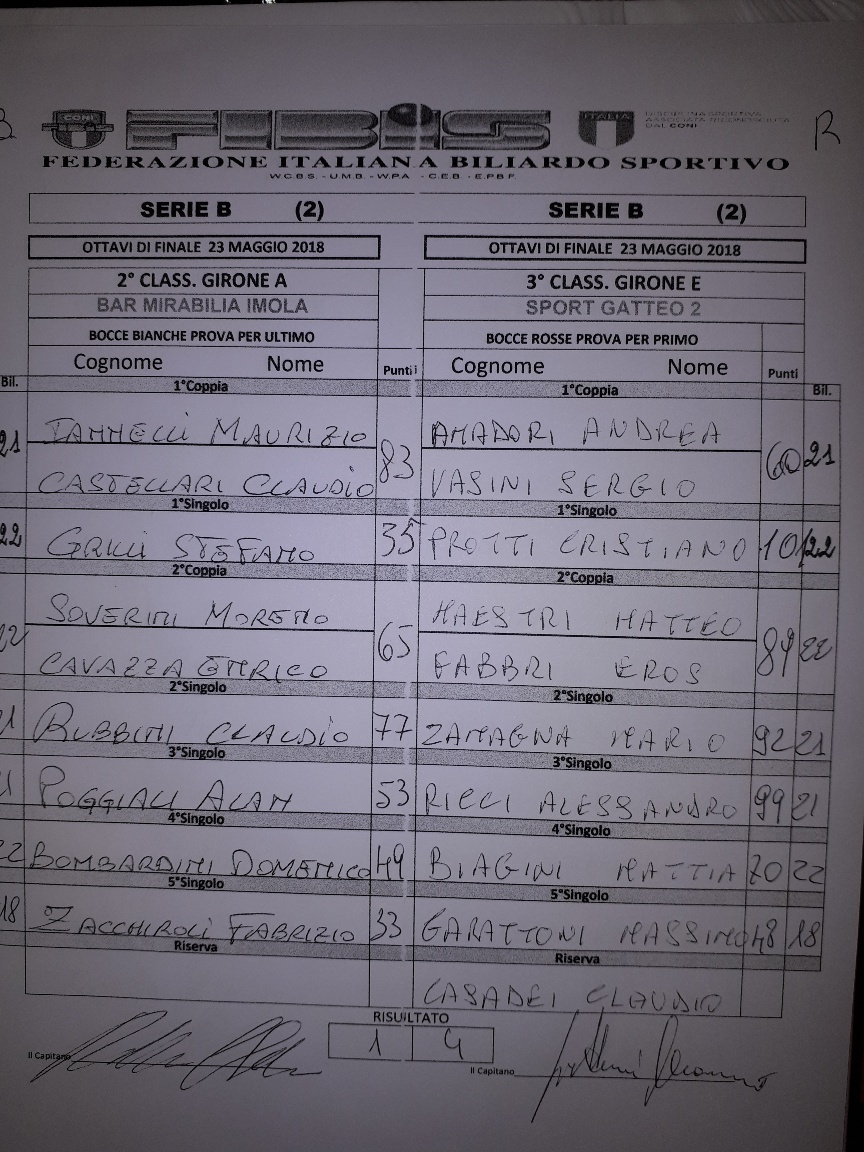 FIBiS
CONI
ITALIA
R
FEDERAZIONE ITALIANA BILIARDO SPORTIVO
W.C.B.S. - U.M.B. - W.P.A. - C.E.B. - E.P.B.F.
SERIE B (2) SERIE B (2)
OTTAVI DI FINALE 23 MAGGIO 2018 OTTAVI DI FINALE 23 MAGGIO 2018
2° CLASS. GIRONE A 3° CLASS. GIRONE E
BAR MIRABILIA IMOLA SPORT GATTEO 2
BOCCE BIANCHE PROVA PER ULTIMO BOCCE ROSSE PROVA PER PRIMO
Cognome Nome Punti Cognome Nome Punti
Bil. 1°Coppia 1°Coppia Bil.
21 IANNELLI MAURIZIO 83 AMADORI ANDREA 60 21
CASTELLARI CLAUDIO VASINI SERGIO
1°Singolo 1°Singolo
22 GRILLI STEFANO 35 PROTTI CRISTIANO 22
2°Coppia 2°Coppia
SOVERINI MORENO 65 MAESTRI MATTEO 22
CAVAZZA FABBRI EROS
2°Singolo 2°Singolo
RUBBINI CLAUDIO 77 ZAMAGNA MARIO 92 21
3°Singolo 3°Singolo
POGGIALI ALAN 53 RICCI ALESSANDRO 99 21
4°Singolo 4°Singolo
BOMBARDINI DOMENICO 49 BIAGINI MATTIA 70 22
5°Singolo 5°Singolo
18 ZACCHIROLI FABRIZIO 33 GARATTONI MASSIMO 48 18
Riserva Riserva
CASADEI CLAUDIO
RISULTATO
1 4
Il Capitano Il Capitano